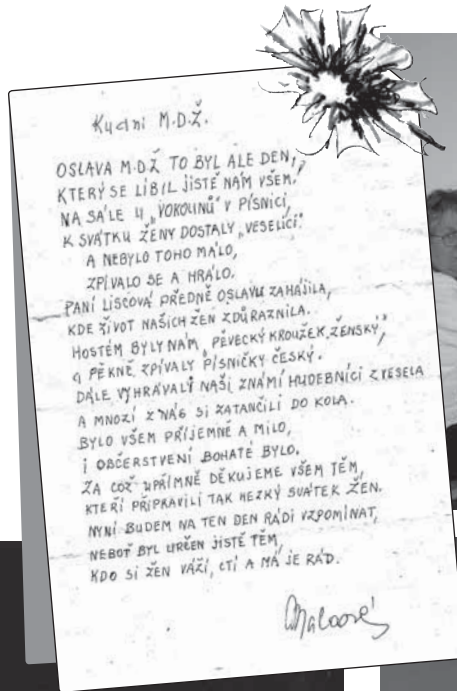 Ku dni M.D.Ž.
OSLAVA M.D.Ž TO BYL ALE DEN,
KTERÝ SE LÍBIL JISTĚ NÁM VŠEM.
NA SÁLE U „VOKOUNŮ" V PÍSNICI,
K SVÁTKU ŽENY DOSTALY „VESELICI."
A NEBYLO TOHO MÁLO,
ZPÍVALO SE A HRÁLO.
PANÍ LISCOVÁ PŘEDNĚ OSLAVU ZAHÁJILA,
KDE ŽIVOT NAŠICH ŽEN ZDŮRAZNILA.
HOSTEM BYL NÁM „PĚVECKÝ KROUŽEK ŽENSKÝ,"
A PĚKNĚ ZPÍVALY PÍSNIČKY ČESKÝ.
DÁLE VYHRÁVALÝ NAŠÍ ZNÁMÍ HUDEBNÍCI ZVESELA
A MNOZÍ Z NÁS SI ZATANČILI DO KOLA.
BYLO VŠEM PŘÍJEMNĚ A MILO,
I OBČERSTVENÍ BOHATÉ BYLO.
ZA COŽ UPŘÍMNĚ DĚKUJEME VŠEM TĚM,
KTEŘÍ PŘIPRAVILI TAK HEZKÝ SVÁTEK ŽEN.
NYNÍ BUDEM NA TEN DEN RÁDI VZPOMÍNAT,
NEBOŤ BYL URČEN JISTĚ TĚM,
KDO SI ŽEN VÁŽÍ, CTÍ A MÁ JE RÁD.